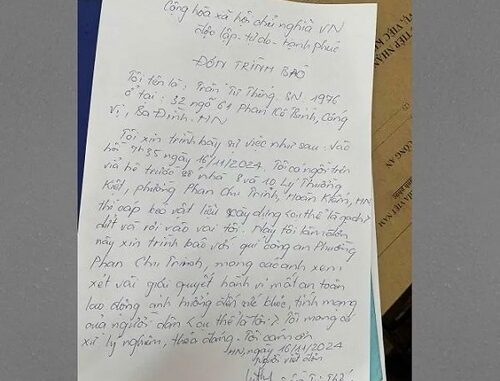 Cộng hòa xã hội chủ nghĩa VN
độc lập - tự do - hạnh phúc
ĐƠN TRÌNH BÁO
Tôi tên là: Trần Thị Thắng. SN 1976
ở tại: 32 ngõ 61 Phan Kế Bính, Cống
vị, Ba Đình. HN
Tôi xin trình bày sự việc như sau: vào
hồi 7h35 ngày 16/11/2024. Tôi có ngồi trên
vỉa hè trước số nhà 8 và 10 Lý Thường
Kiệt, phường Phan Chu Trinh, Hoàn Kiếm, HN
thì cáp kéo vật liệu xây dựng <cụ thể là gạch>
đứt và rơi vào vai tôi. Nay tôi làm đơn
này xin trình báo với quí công an Phường
Phan Chu Trinh, mong các anh xem
xét và giải quyết hành vi mất an toàn
lao động ảnh hưởng đến sức khỏe, tính mạng
của người dân <cụ thể là tôi>. Tôi mong
xử lý nghiêm, thỏa đáng. Tôi cảm ơn
HN, ngày 16/11/2024
người viết đơn
TIẾP NHẬN
CÔNG AN